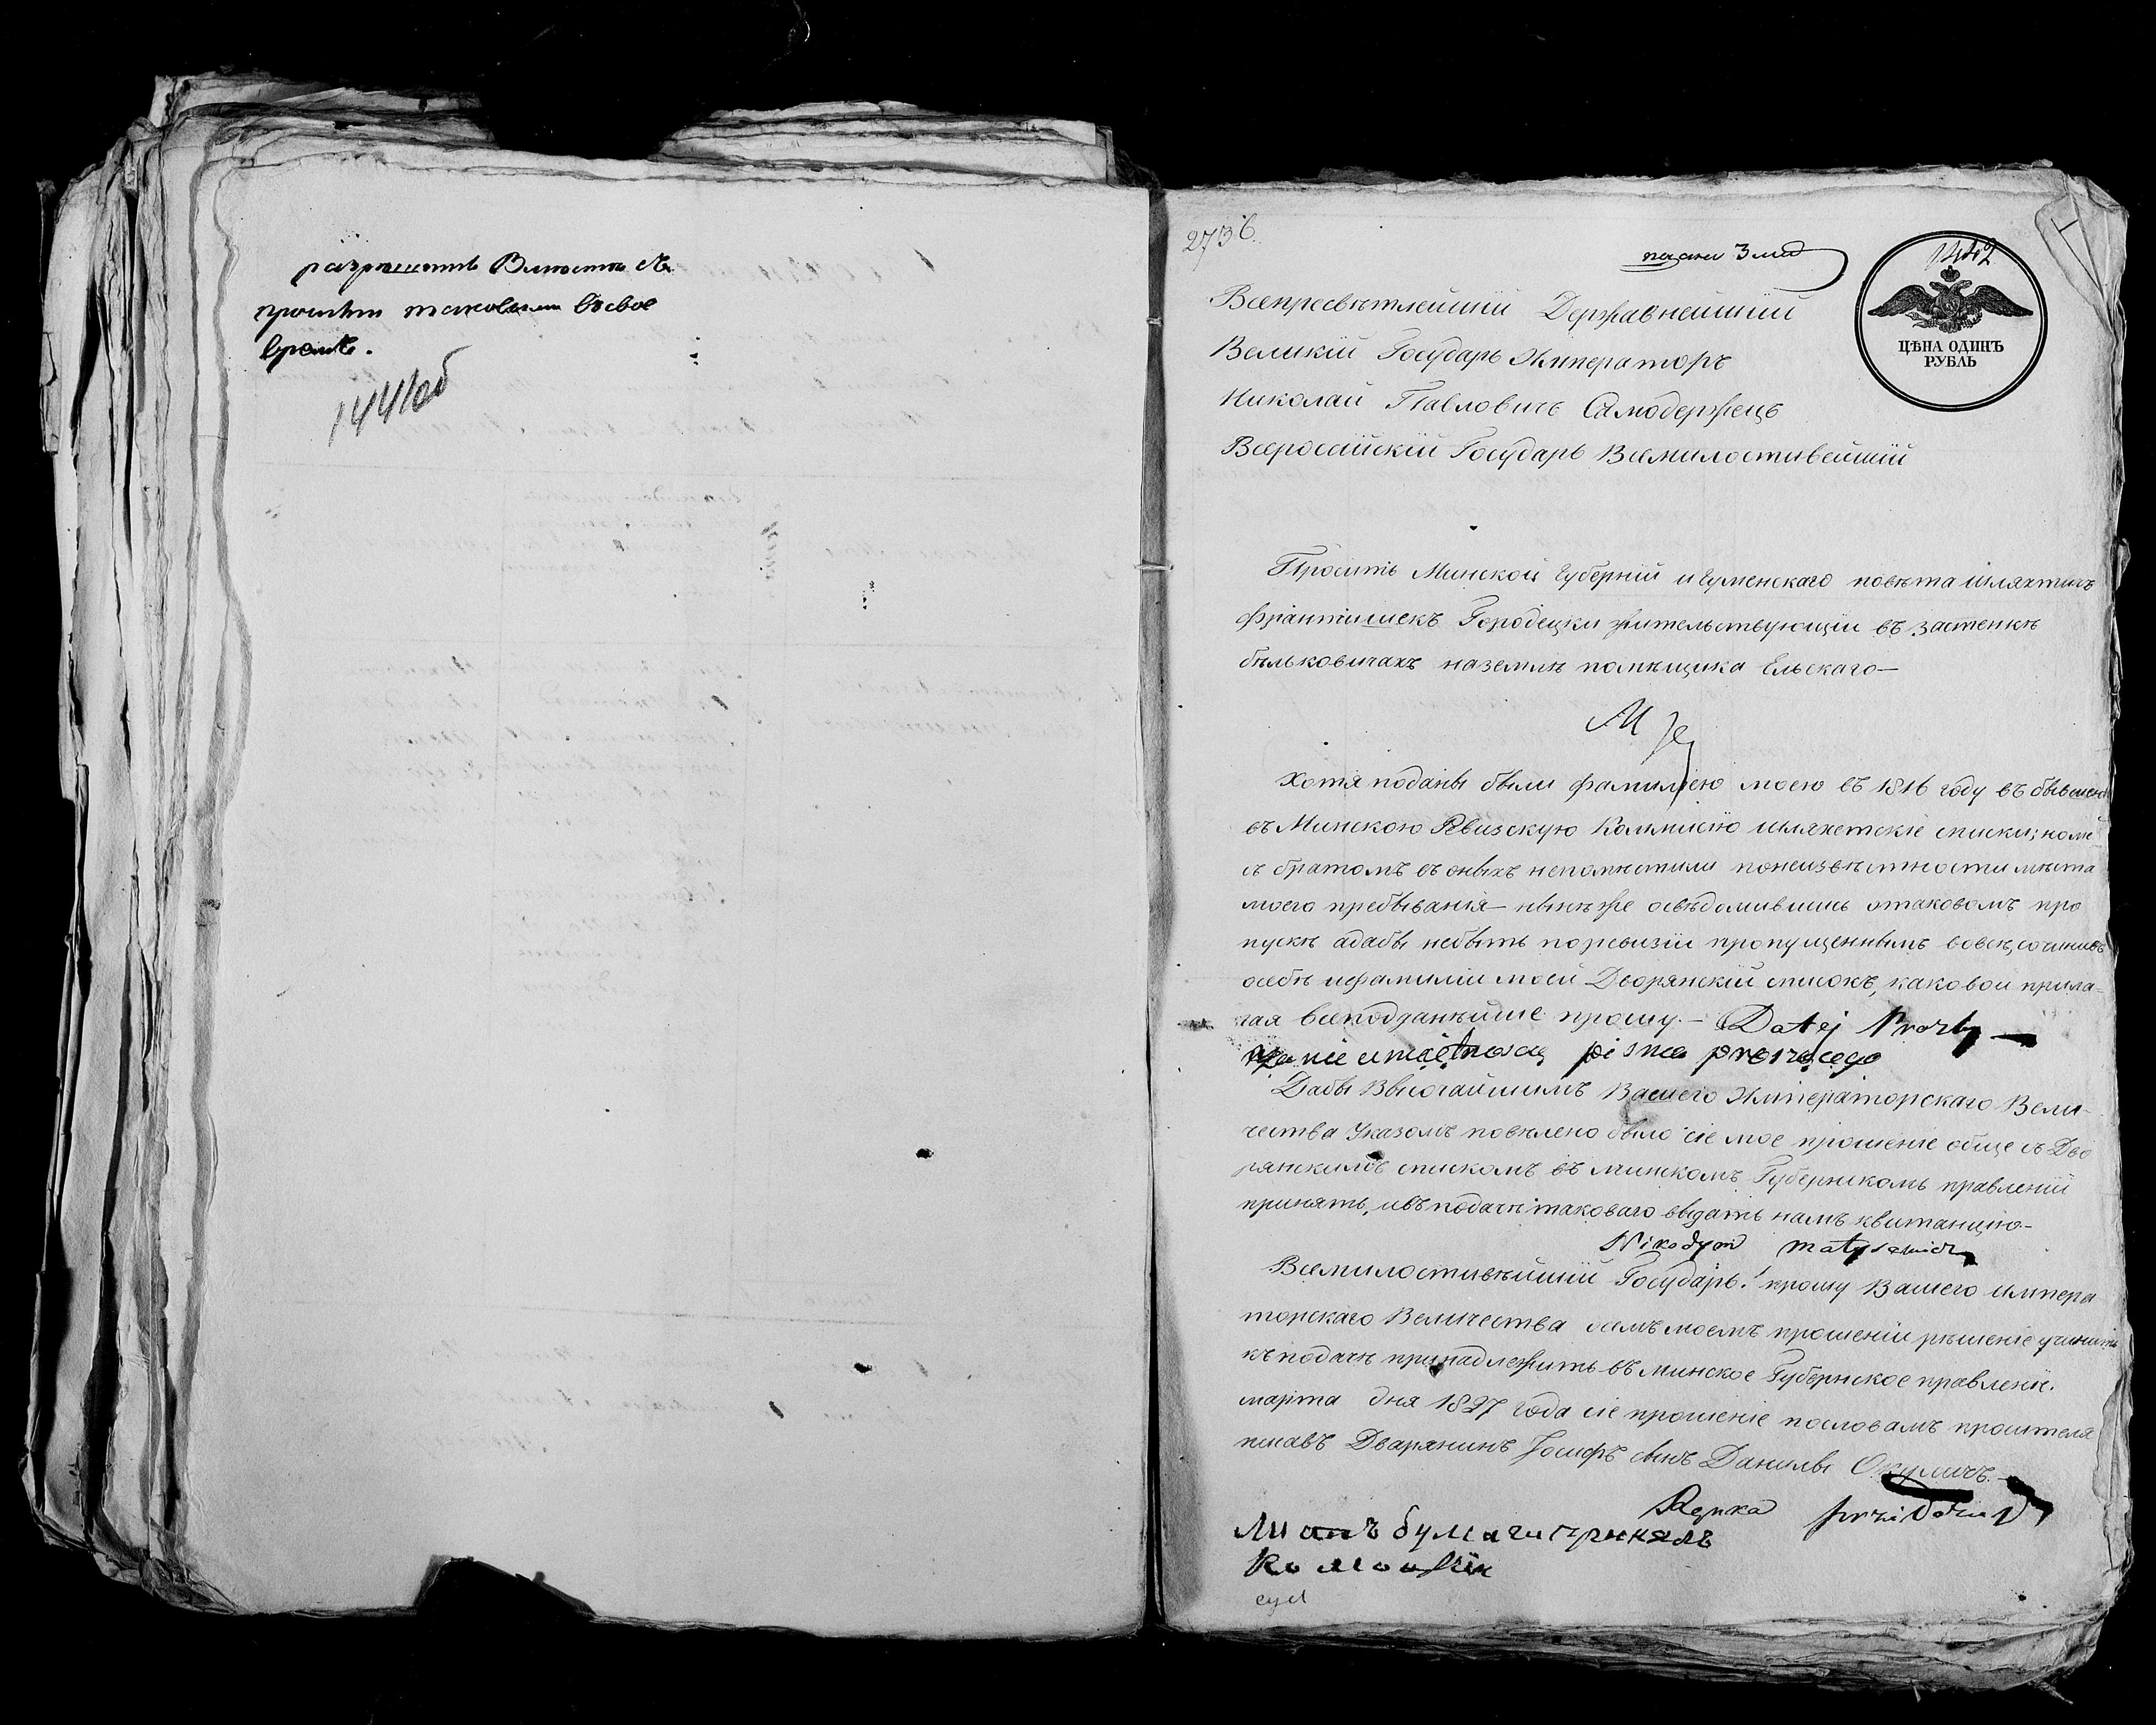 разрешить Вместѣ съ
прошлым таковыми Въсвое
время.
1441об
2736.
1442
ЦѢНА ОДИНЪ
РУБЛЬ
Всепресвѣтлейшій Державнейшій
Великій Государь Императоръ
Николай Павловичь Самодержецъ
Всеросийскій Государь Всемилостивейшій
Просить Минской Губерній Игуменскаго повѣта шляхтичъ
Франтишекъ Городецки жительствующій въ застенкѣ
бѣльковичахъ наземлѣ помѣщика Ельскаго—
Хотя поданы были фамиліею моею въ 1816 году въ бывшею
въ Минскою Ревизскую Коммисію шляхетскіе списки; но
съ братомъ въ оныхъ непомѣстили понеизвѣстности мѣста
моего пребыванія— нынѣже освѣдомившись отаковомъ про
пускѣ адабы небыть поревизіи пропущеннымъ вовсе, сочинивъ
осебѣ ифамиліи моей Дворянскій списокъ, каковои прила=
гая всеподданнѣйше прошу.— Do tej Prozby —
za nie umiętnoscią pisma proszącego
Дабы Высочайшимъ Вашего Императорскаго Вели-
чества Указомъ повѣлено было сіе мое прошеніе обще съ Дво
рянскимъ спискомъ въ минскомъ Губернскомъ правленіи
принять, ивъ подачѣ таковаго выдать намъ квитанцію—
Nikodym Matysewicz
Всемилостивѣйшій Государь! прошу Вашего импера
торскаго Величества осемъ моемъ прошеніи рѣшеніе учинить
къ подачѣ принадлежить въ минское Губернское правленіе.
марта дня 1827 года сіе прошеніе пословамъ просителя
писавъ Дварянинъ Іосифъ сынъ Данилы Окуличъ.—
бумаги принялъ